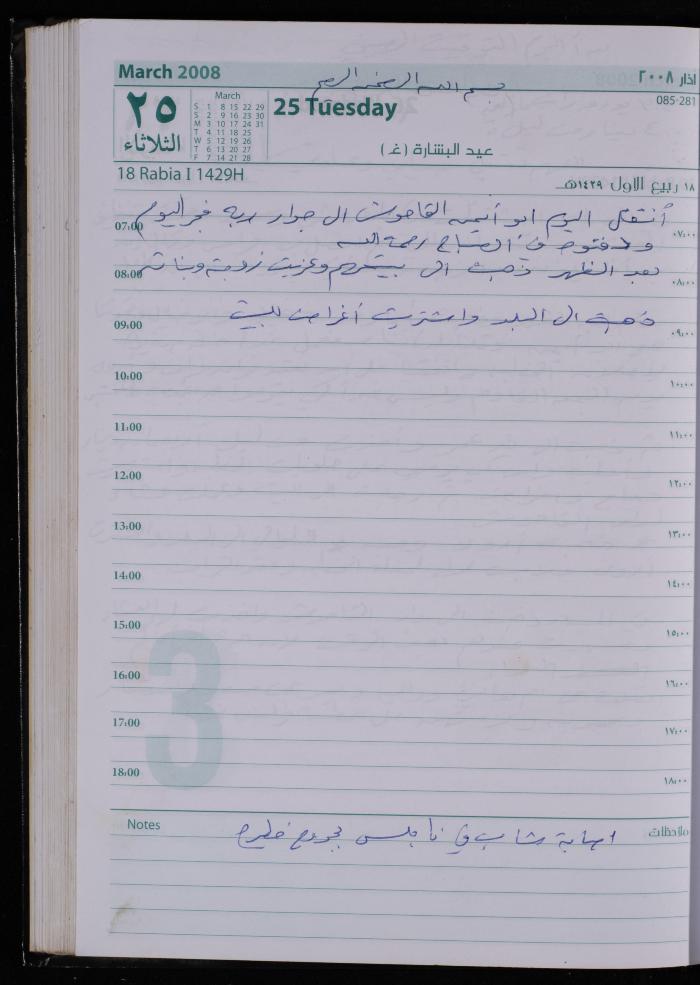 March 2008
بسم الله الرحمن الرحيم
آذار ٢٠٠٨
٢٥
الثلاثاء
March
S 1 8 15 22 29
S 2 9 16 23 30
M 3 10 17 24 31
T 4 11 18 25
W 5 12 19 26
T 6 13 20 27
F 7 14 21 28
25 Tuesday
085-281
عيد البشارة (غ)
18 Rabia I 1429H
١٨ ربيع الاول ١٤٢٩هـ
أنتقل اليوم ابو أيمن القاموس الى جوار ربه فجر اليوم
07:00 ٠٧:٠٠
في الصباح رحمه الله
بعد الظهر ذهبت الى بيتهم وعزيت زوجته وبناته
08:00 ٠٨:٠٠
ذهبت الى البلد واشتريت أغراض للبيت
09:00 ٠٩:٠٠
10:00 ١٠:٠٠
11:00 ١١:٠٠
12:00 ١٢:٠٠
13:00 ١٣:٠٠
14:00 ١٤:٠٠
15:00 ١٥:٠٠
16:00 ١٦:٠٠
17:00 ١٧:٠٠
18:00 ١٨:٠٠
3
Notes ملاحظات
اصابة شاب في نابلس بجروح خطيرة